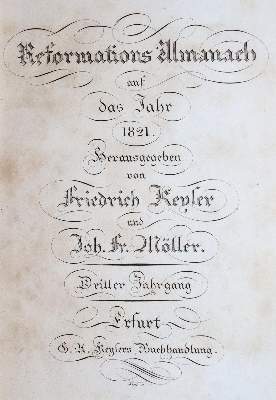 Reformations Almanach
auf
das Jahr
1821.
Herausgegeben
von
Friedrich Keyser
und
Joh. Fr. Möller.
Dritter Jahrgang
Erfurt
G. A. Keysers Buchhandlung.